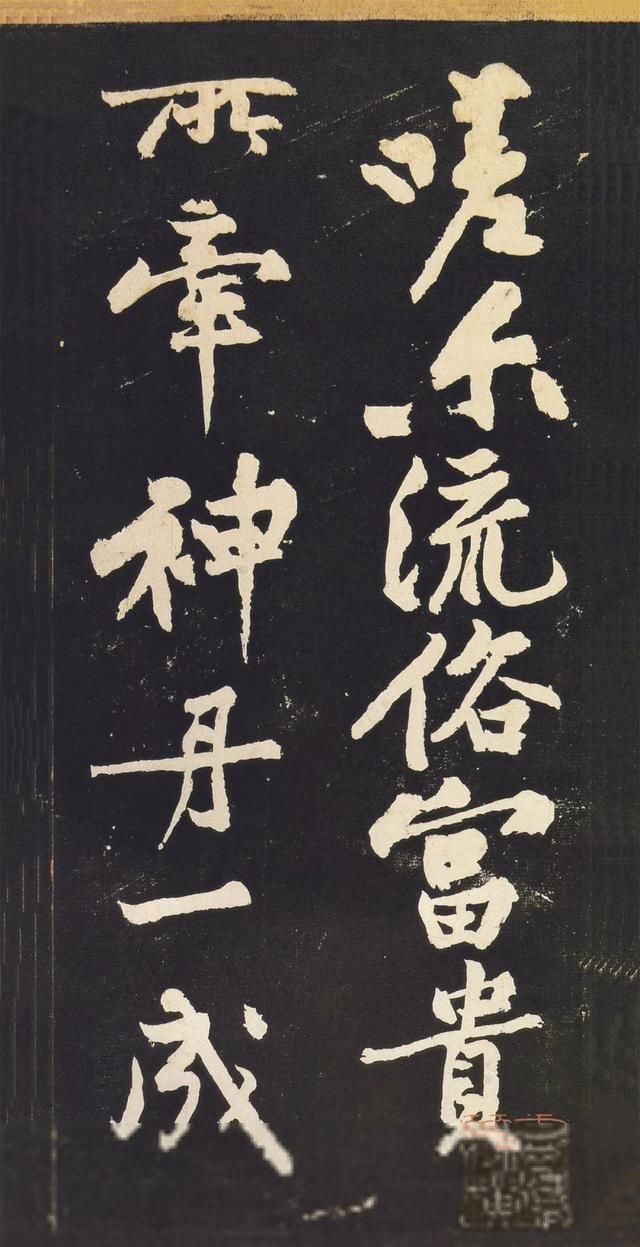 嗟尔流俗富貴
所牽神丹一成